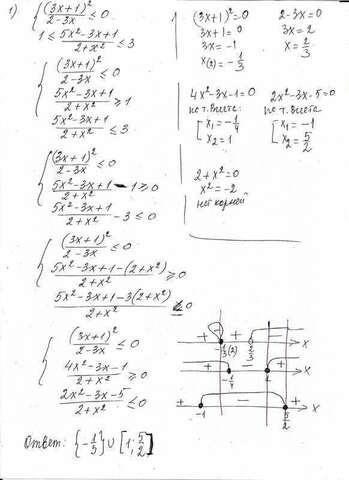 1) { (3x+1)²/(2-3x) ≤ 0
1 ≤ (5x²-3x+1)/(2+x²) ≤ 3
{ (3x+1)²/(2-3x) ≤ 0
(5x²-3x+1)/(2+x²) ≥ 1
(5x²-3x+1)/(2+x²) ≤ 3
{ (3x+1)²/(2-3x) ≤ 0
(5x²-3x+1)/(2+x²) - 1 ≥ 0
(5x²-3x+1)/(2+x²) - 3 ≤ 0
{ (3x+1)²/(2-3x) ≤ 0
(5x²-3x+1-(2+x²))/(2+x²) ≥ 0
(5x²-3x+1-3(2+x²))/(2+x²) ≤ 0
{ (3x+1)²/(2-3x) ≤ 0
(4x²-3x-1)/(2+x²) ≥ 0
(2x²-3x-5)/(2+x²) ≤ 0
Ответ: {-1/3} ∪ [1; 5/2]
(3x+1)²=0
3x+1=0
3x=-1
x(2)=-1/3
2-3x=0
3x=2
x=2/3
4x²-3x-1=0
по т. Виета
[ x₁=-1/4
x₂=1
2x²-3x-5=0
по т. Виета
[ x₁=-1
x₂=5/2
2+x²=0
x²=-2
нет корней
+ + - -1/3(2) 2/3 x
+ - + -1/4 1 x
+ - + -1 5/2 x